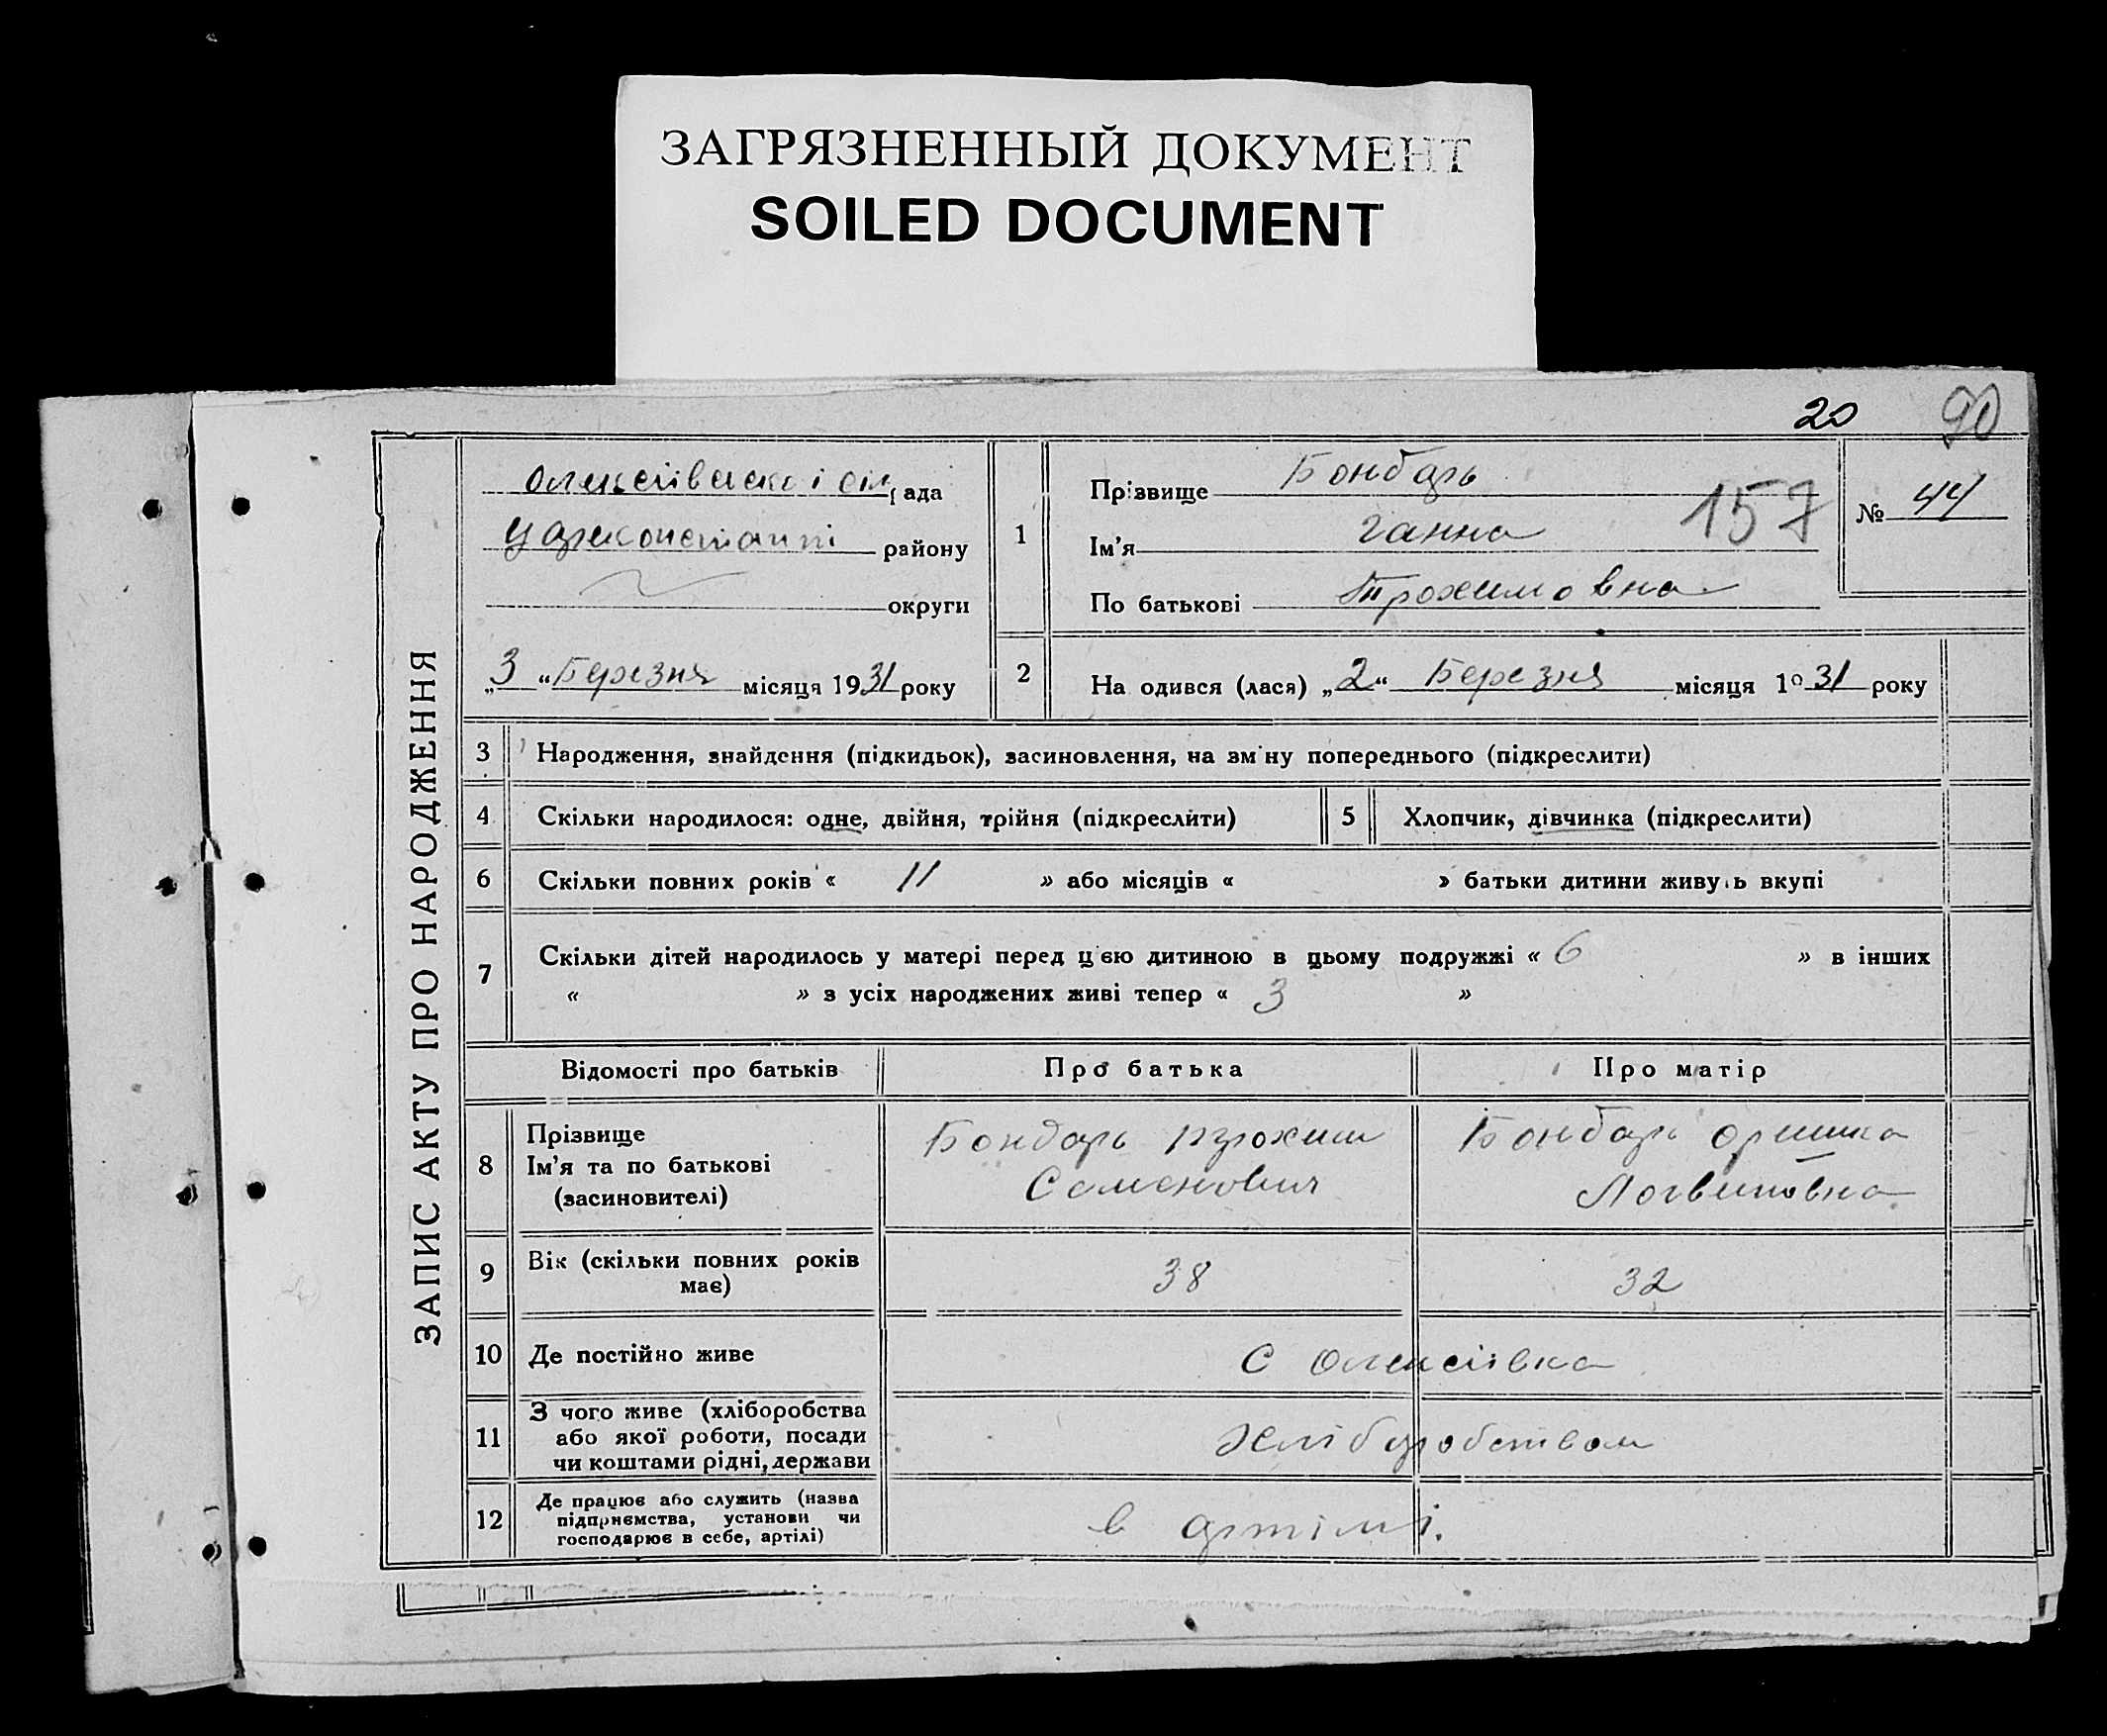 ЗАГРЯЗНЕННЫЙ ДОКУМЕНТ
SOILED DOCUMENT
20 90
ЗАПИС АКТУ ПРО НАРОДЖЕННЯ
Олексіівської сіл рада
району
округи
„3“ Березня місяця 1931 року
1
Прізвище Бондарь
Ім’я Ганна
По батькові Трохимовна
157
№ 44
2 На одився (лася) „2“ Березня місяця 1931 року
3 Народження, знайдення (підкидьок), засиновлення, на зм ну попереднього (підкреслити)
4 Скільки народилося: одне, двійня, трійня (підкреслити) 5 Хлопчик, дівчинка (підкреслити)
6 Скільки повних років « 11 » або місяців « » батьки дитини живуть вкупі
7 Скільки дітей народилось у матері перед цією дитиною в цьому подружжі « 6 » в інших
« » з усіх народжених живі тепер « 3 »
Відомості про батьків Про батька Про матір
8 Прізвище
Ім’я та по батькові
(засиновителі)
Бондарь Трохим
Семенович
Бондарь Оришка
Логвиновна
9 Вік (скільки повних років
має)
38 32
10 Де постійно живе с Олексіівка
11 З чого живе (хліборобства
або якої роботи, посади
чи коштами рідні, держави
Хліборобством
12 Де працює або служить (назва
підприємства, установи чи
господарює в себе, артілі)
в артілі.